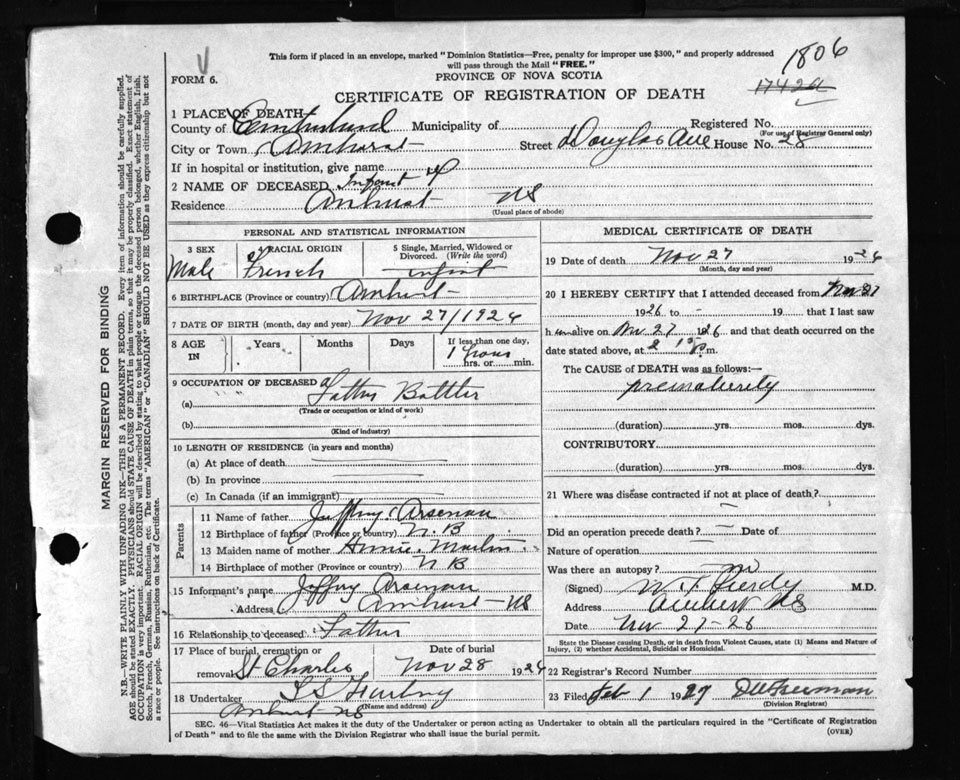 This form if placed in an envelope, marked "Dominion Statistics—Free, penalty for improper use $300," and properly addressed
will pass through the Mail "FREE."
1806
FORM 6.
PROVINCE OF NOVA SCOTIA
CERTIFICATE OF REGISTRATION OF DEATH
1742a
1 PLACE OF DEATH
County of Cumberland Municipality of Registered No.
(For use of Registrar General only)
City or Town Amherst Street Douglas Ave House No. 28
If in hospital or institution, give name
2 NAME OF DECEASED Infant of
Residence Amherst NS
(Usual place of abode)
PERSONAL AND STATISTICAL INFORMATION
3 SEX 4 RACIAL ORIGIN 5 Single, Married, Widowed or
Divorced. (Write the word)
Male French infant
6 BIRTHPLACE (Province or country) Amherst
7 DATE OF BIRTH (month, day and year) Nov 27/1926
8 AGE IN Years Months Days If less than one day,
1 hour
hrs. or min.
9 OCCUPATION OF DECEASED
(a) Father Bottler
(Trade or occupation or kind of work)
(b)
(Kind of industry)
10 LENGTH OF RESIDENCE (in years and months)
(a) At place of death
(b) In province
(c) In Canada (if an immigrant)
Parents
11 Name of father Jeffrey Arsenau
12 Birthplace of father (Province or country) N.B
13 Maiden name of mother Annie
14 Birthplace of mother (Province or country) N B
15 Informant's name Jeffry Arsenau
Address Amherst NS
16 Relationship to deceased Father
17 Place of burial, cremation or Date of burial
removal St Charles Nov 28 1926
18 Undertaker
(Name and address)
Amherst NS
MEDICAL CERTIFICATE OF DEATH
19 Date of death Nov 27 1926
(Month, day and year)
20 I HEREBY CERTIFY that I attended deceased from Nov 27
1926 to - 19 that I last saw
him alive on Nov 27 1926 and that death occurred on
date stated above, at 2 15 p.m.
The CAUSE of DEATH was as follows:
prematurity
(duration) yrs. mos. dys.
CONTRIBUTORY
(duration) yrs. mos. dys.
21 Where was disease contracted if not at place of death?
Did an operation precede death? Date of
Nature of operation
Was there an autopsy? no
(Signed) W. T. Purdy M.D.
Address Amherst NS
Date Nov 27-26
State the Disease causing Death, or in death from Violent Causes, state (1) Means and Nature of
Injury, (2) whether Accidental, Suicidal or Homicidal.
22 Registrar's Record Number
23 Filed Feb 1 1927 Freeman
(Division Registrar)
SEC. 46—Vital Statistics Act makes it the duty of the Undertaker or person acting as Undertaker to obtain all the particulars required in the "Certificate of Registration
of Death" and to file the same with the Division Registrar who shall issue the burial permit.
(OVER)
MARGIN RESERVED FOR BINDING
N.B.—WRITE PLAINLY WITH UNFADING INK—THIS IS A PERMANENT RECORD. Every item of information should be carefully supplied.
AGE should be stated EXACTLY. PHYSICIANS should STATE CAUSE OF DEATH in plain terms, so that it may be properly classified. Exact statement of
OCCUPATION is very important. RACIAL ORIGIN will be described by stating to what people or tongue the deceased person belonged, whether English, Irish,
Scotch, French, German, Russian, Ruthenian, etc. The terms "AMERICAN" or "CANADIAN" SHOULD NOT BE USED as they express citizenship but not
a race or people. See instructions on back of Certificate.